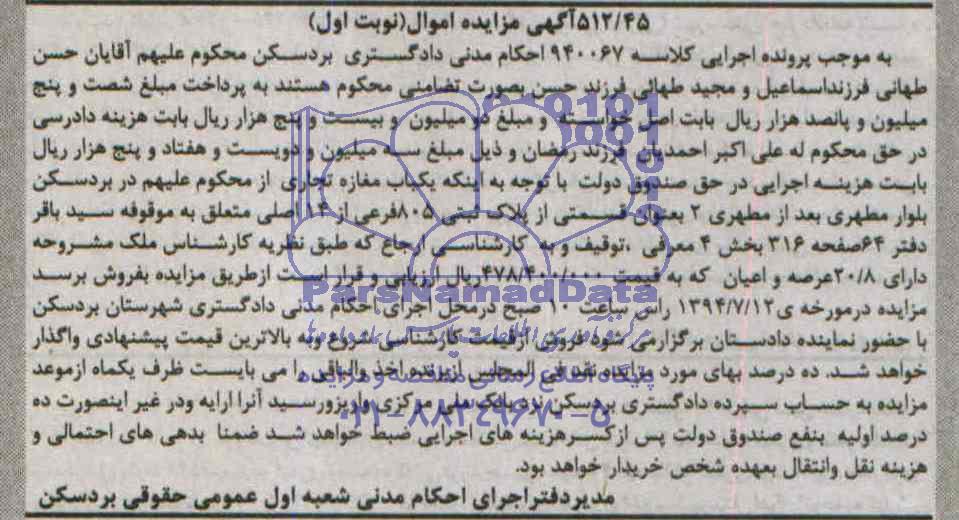 ۵۱۲/۴۵آگهی مزایده اموال(نوبت اول)
به موجب پرونده اجرایی کلاسه ۹۴۰۰۶۷ احکام مدنی دادگستری بردسکن محکوم علیهم آقایان حسن
طهانی فرزنداسماعیل و مجید طهائی فرزند حسن بصورت تضامنی محکوم هستند به پرداخت مبلغ شصت و پنج
میلیون و پانصد هزار ریال بابت اصل خواسته و مبلغ دو میلیون و بیست و پنج هزار ریال بابت هزینه دادرسی
در حق محکوم له علی اکبر احمدیان فرزند رمضان و ذیل مبلغ سه میلیون و دویست و هفتاد و پنج هزار ریال
بابت هزینه اجرایی در حق صندوق دولت با توجه به اینکه یکباب مغازه تجاری از محکوم علیهم در بردسکن
بلوار مطهری بعد از مطهری ۲ بعنوان قسمتی از پلاک ثبتی ۸۰۵فرعی از ۱۴ اصلی متعلق به موقوفه سید باقر
دفتر ۶۴صفحه ۳۱۶ بخش ۴ معرفی ،توقیف و به کارشناسی ارجاع که طبق نظریه کارشناس ملک مشروحه
دارای ۲۰/۸عرصه و اعیان که به قیمت ۴۷۸/۴۰۰/۰۰۰ریال ارزیابی و قرار است ازطریق مزایده بفروش برسد
مزایده درمورخه ی۱۳۹۴/۷/۱۲ راس ساعت ۱۰ صبح درمحل اجرای احکام مدنی دادگستری شهرستان بردسکن
با حضور نماینده دادستان برگزارمی شود فروش ازقیمت کارشناسی شروع وبه بالاترین قیمت پیشنهادی واگذار
خواهد شد. ده درصد بهای مورد مزایده نقد فی المجلس از برنده اخذ والباقی را می بایست ظرف یکماه ازموعد
مزایده به حساب سپرده دادگستری بردسکن نزد بانک ملی مرکزی واریزورسید آنرا ارایه ودر غیر اینصورت ده
درصد اولیه بنفع صندوق دولت پس ازکسرهزینه های اجرایی ضبط خواهد شد ضمنا بدهی های احتمالی و
هزینه نقل وانتقال بعهده شخص خریدار خواهد بود.
مدیردفتراجرای احکام مدنی شعبه اول عمومی حقوقی بردسکن
ParsNamadData
پایگاه اطلاع رسانی مناقصه و مزایده
۰۲۱-۸۸۳۴۹۶۷۰-۵